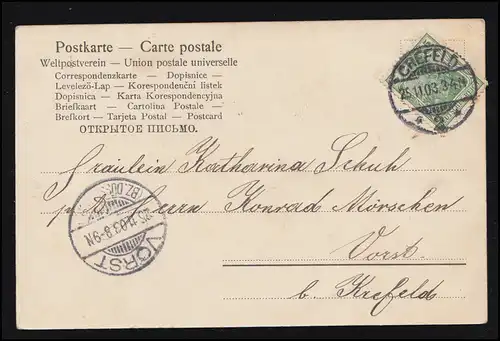 Postkarte — Carte postale
Weltpostverein — Union postale universelle
Correspondenzkarte — Dopisnice —
Levelező-Lap — Korespondenční lístek
Dopisnica — Karta Korespondencyjna
Briefkaart — Cartolina Postale —
Brefkort — Tarjeta Postal — Postcard
ОТКРЫТОЕ ПИСЬМО.
CREFELD
25.11.03.3-4
* 2 *
Fräulein Katharina Schuh
p. Herrn Konrad Mörschen
Vorst.
b. Krefeld
VORST
25.11.03.8-9N
(BZ.DÜ